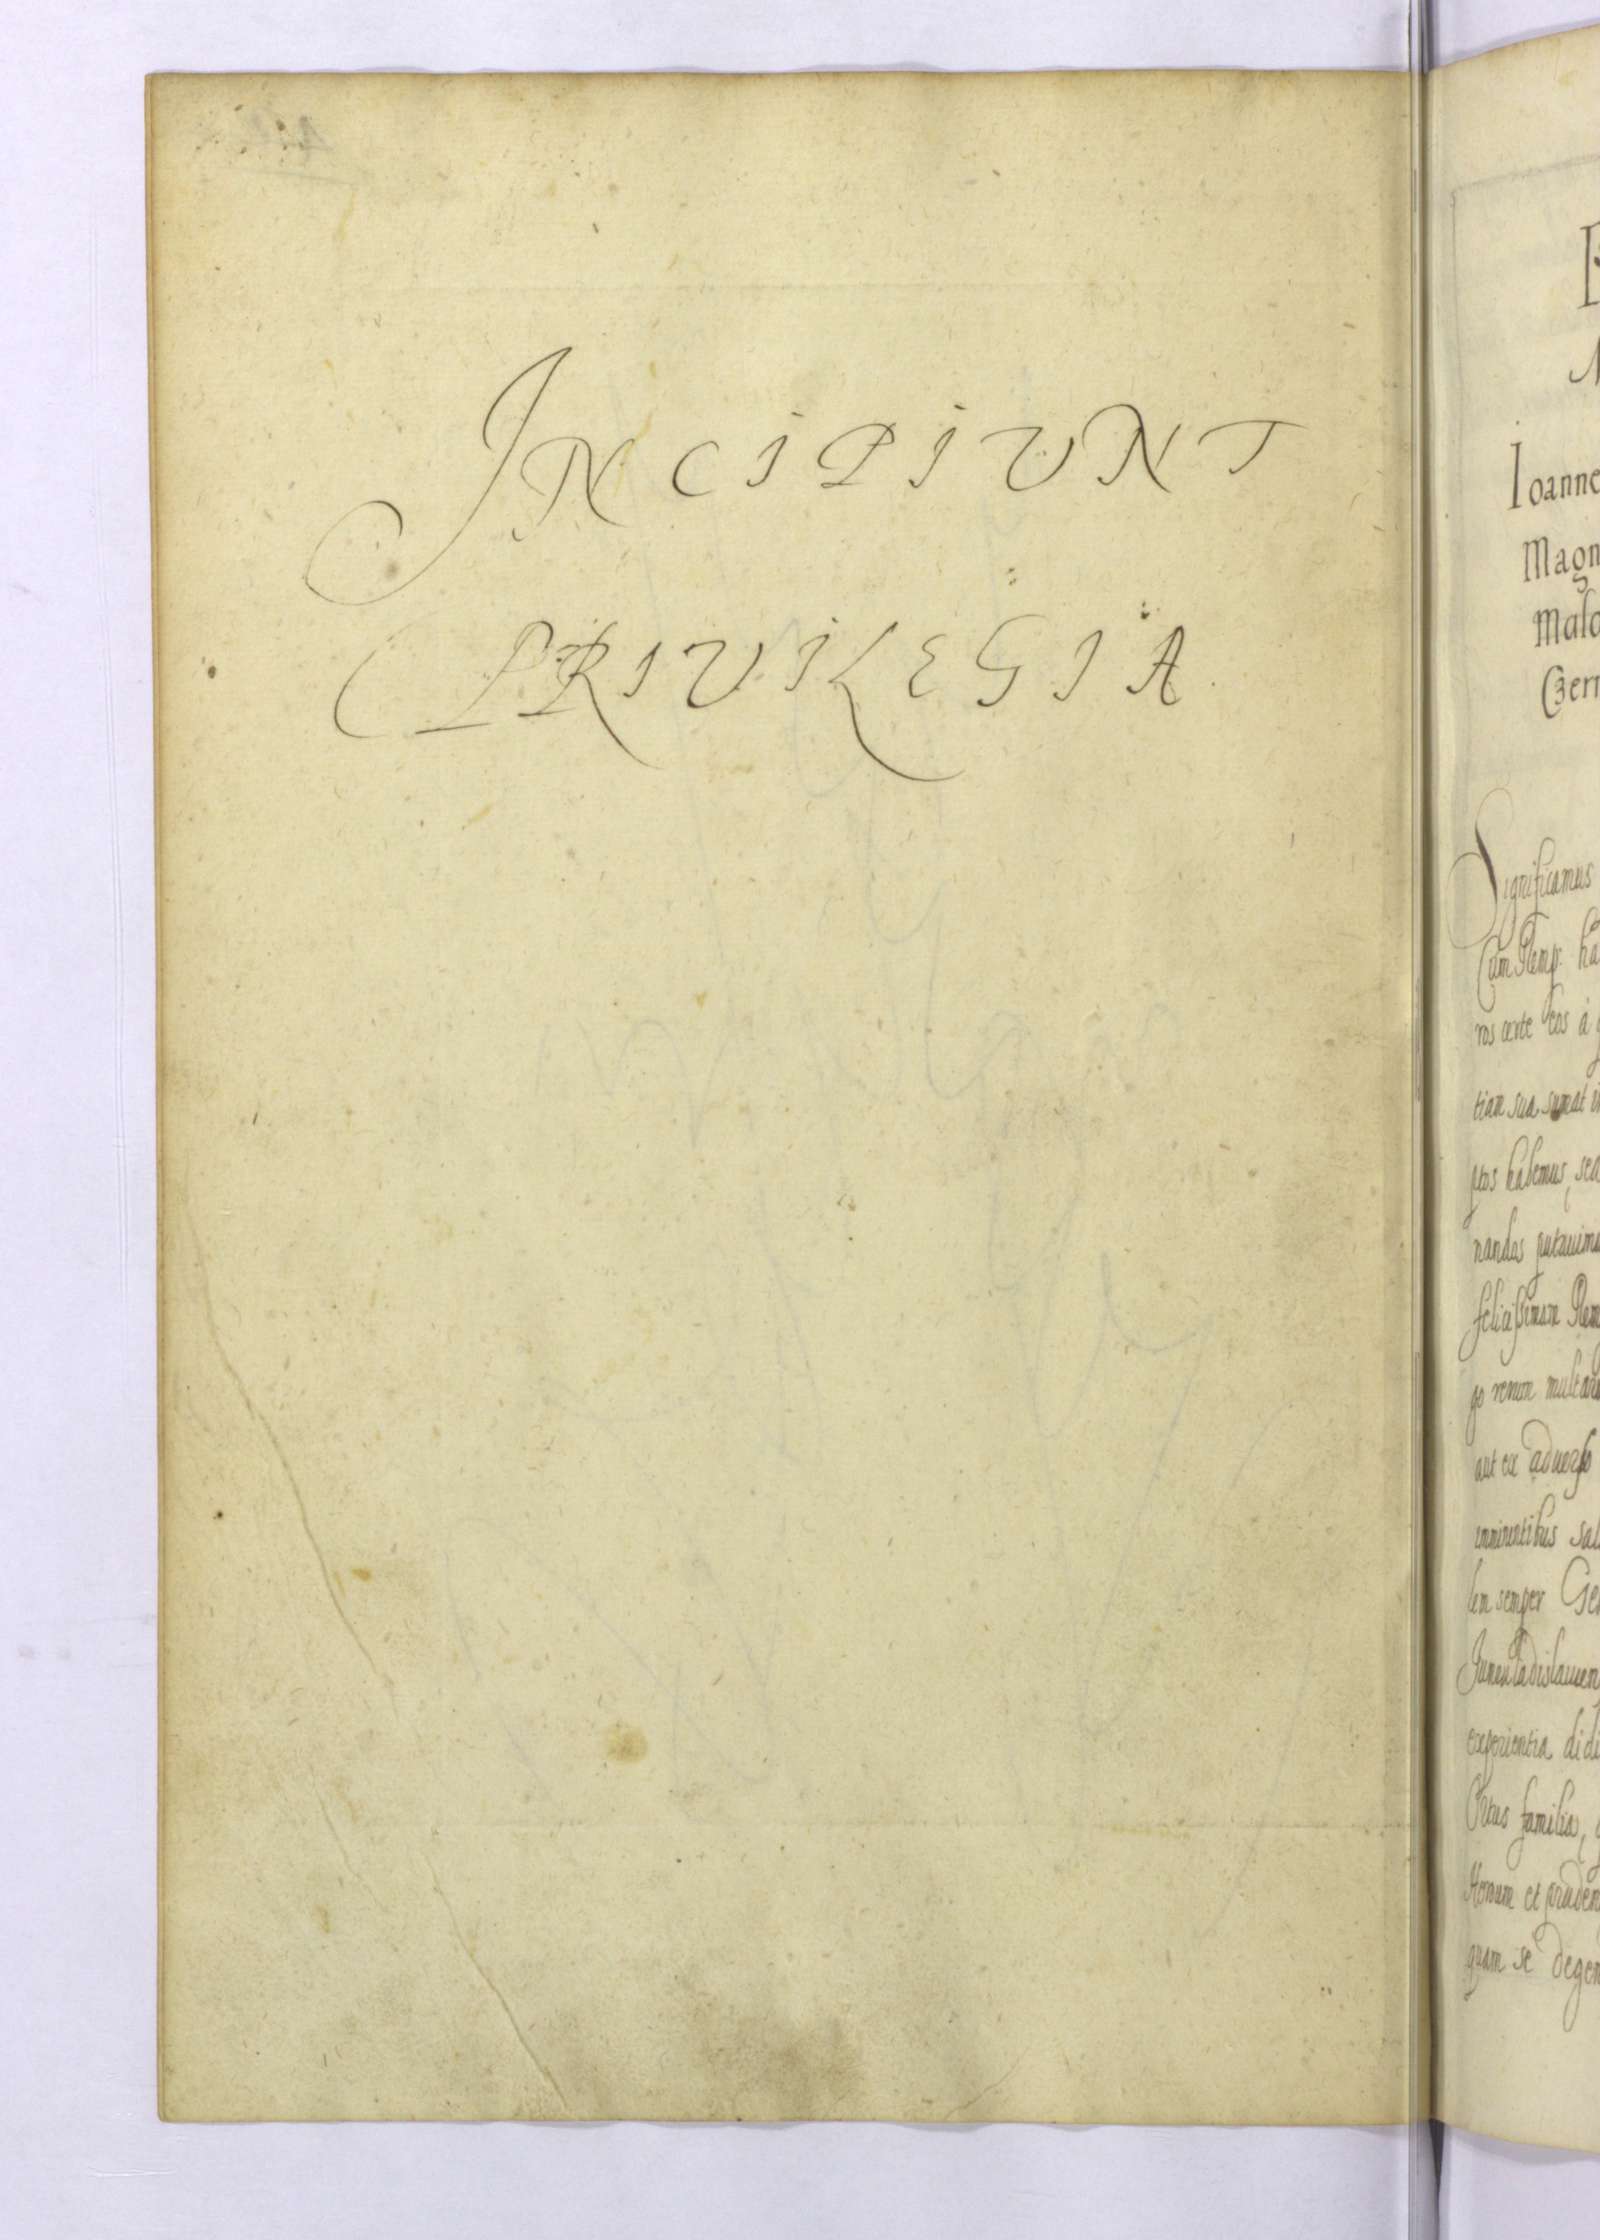 INCIPIUNT
PRIVILEGIA.
Ioanne
Magn
Czern
Significamus
Cum Remp: ha
ros certe eos à
tiam sua sumat
ptos habemus, sed
nandos putauimu
felicissimam Rem
go rerum multaru
aut ex aduerso
imminentibus sal
lem semper Ge
Junouladislauien
experientia didi
Ortus familia,
et pruden
quam se degen